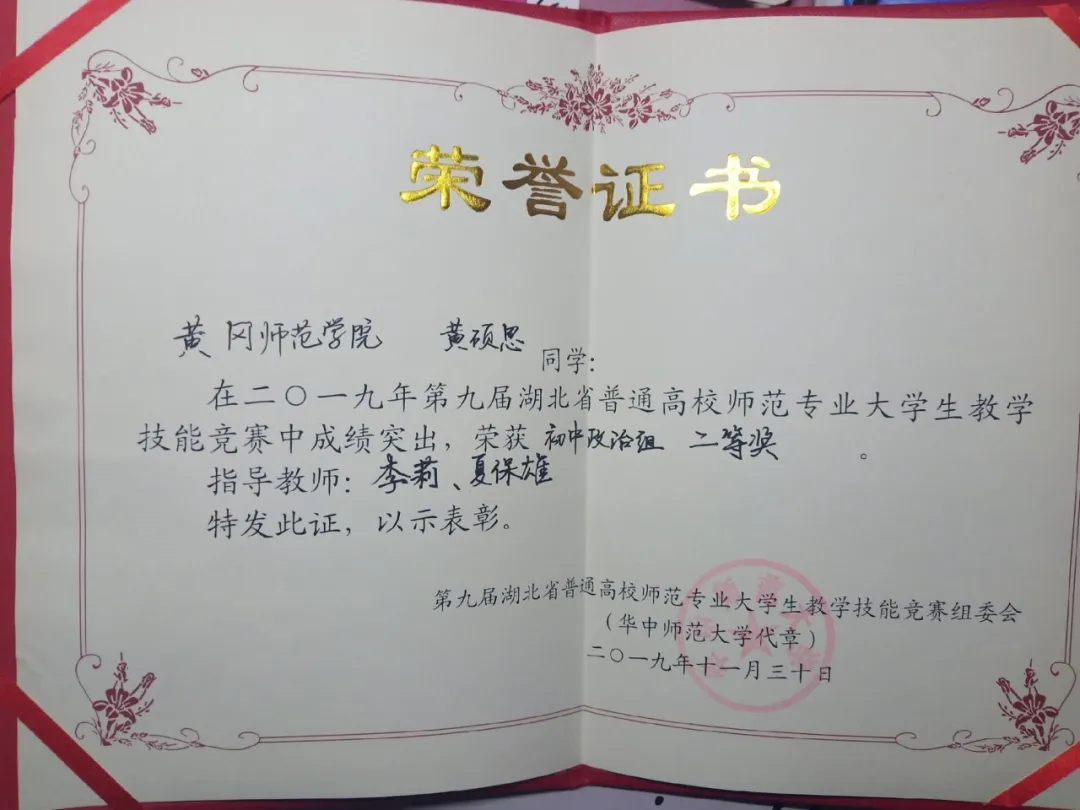 荣誉证书
黄冈师范学院 黄硕思 同学:
在二〇一九年第九届湖北省普通高校师范专业大学生教学
技能竞赛中成绩突出，荣获 初中政治组 二等奖 。
指导教师: 李莉、夏保雄
特发此证，以示表彰。
第九届湖北省普通高校师范专业大学生教学技能竞赛组委会
（华中师范大学代章）
二〇一九年十一月三十日